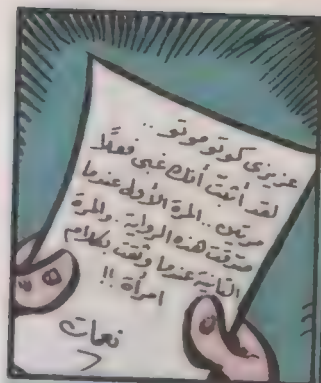 عزيزى كوتوموتو ..
لقد أثبت أنك غبى فعلًا
مرتين .. المرة الأولى عندما
صدقت هذه الرواية .. والمرة
الثانية عندما وثقت بكلام
امرأة !!
نعمات